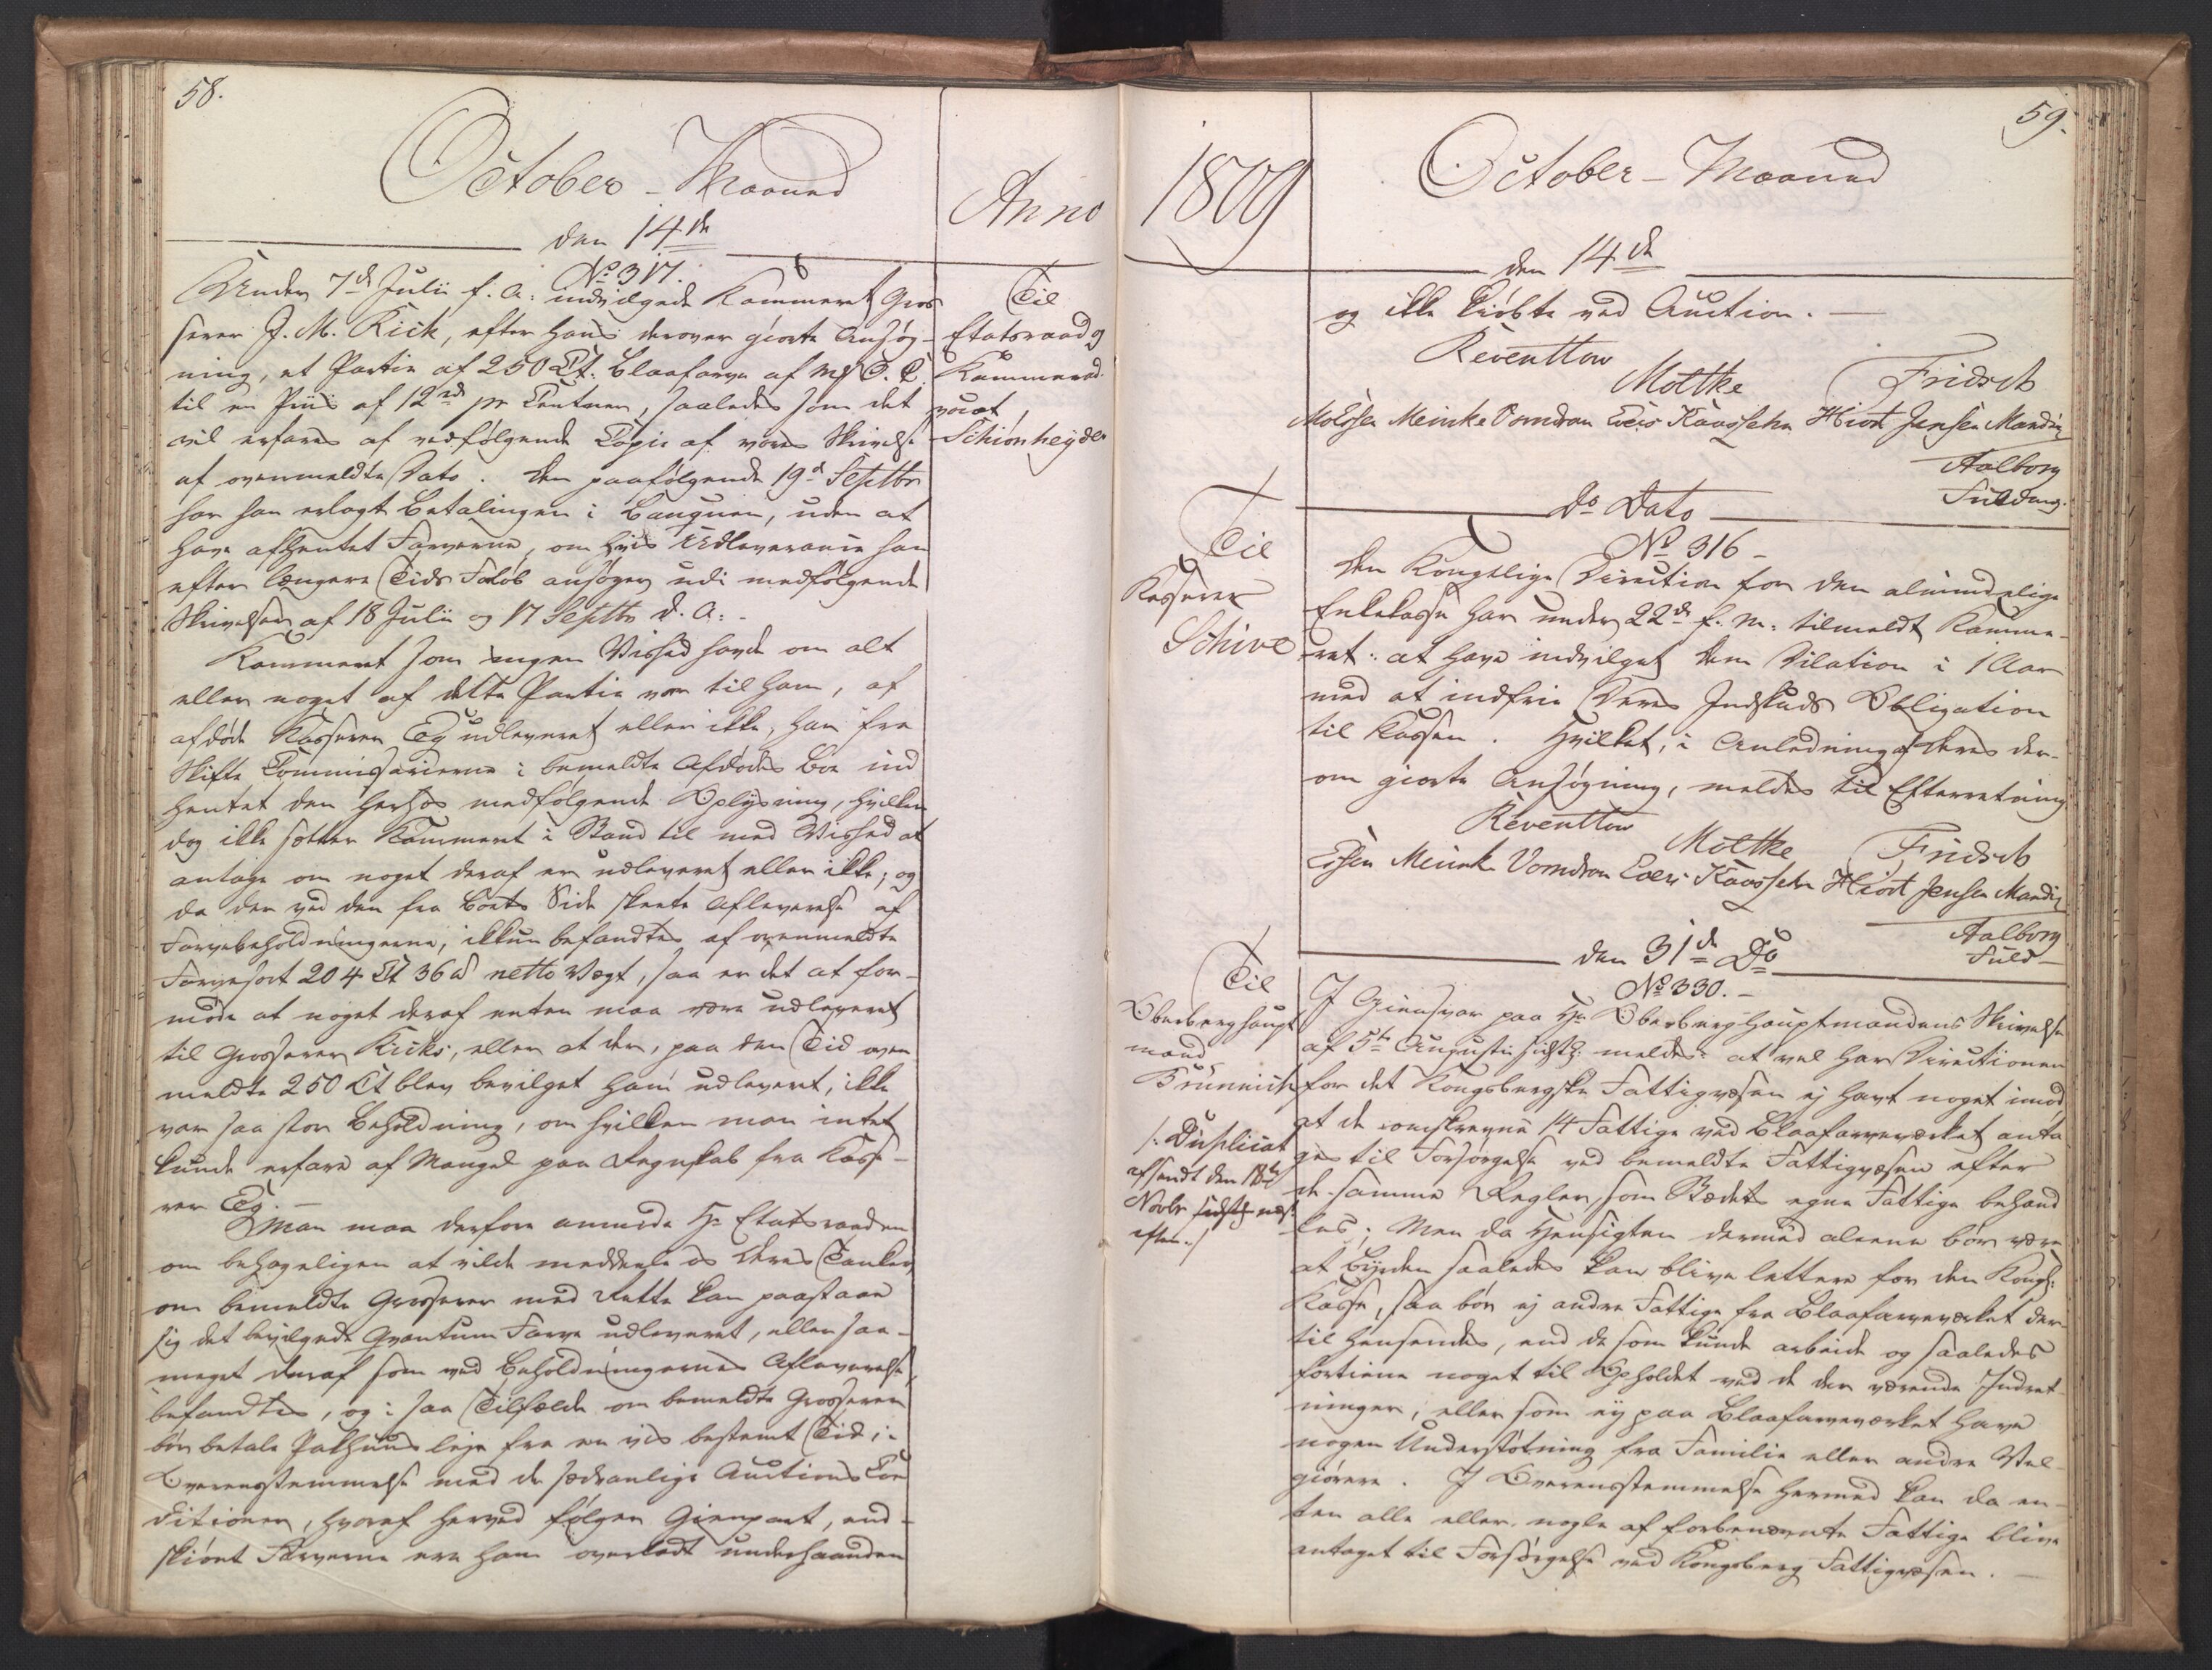 58.
October - Maaned
Anno
den 14de
No 317.
Til
Etatsraad og
Kammerad-
vocat
Schiönheyder
Under 7de Julii f. A: indvilgede Kammeret Gros
serer J. M. Kick, efter hans derover giorte Ansøg-
ning, et Partie af 250 Ct. Blaafarve af
til en Priis af 12 rd pr Centner, saaledes som det
vil erfares af vedfølgende Copie af vores Skrivelse
af ovenmeldte Dato. Den paafølgende 19d Septbr
har han erlagt Betalingen i Banquen, uden at
have afhentet Farverne, om hvis Udleverance han
efter længere Tids Forløb ansøger udi medfølgende
Skrivelser af 18 Julii og 17 Septbr d. A: -
Kammeret som ingen Vished havde om alt
eller noget af dette Partie var til ham, af
afdøde Kasserer Eg udleveret eller ikke, har fra
Skifte Commissarierne i bemeldte Afdødes Boe ind
hentet den herhos medfølgende Oplysning, hvilken
dog ikke sætter Kammeret i Stand til med Vished at
antage om noget deraf er udleveret eller ikke; og
da der ved den fra Boets Side skeete Afleverelse af
Farvebeholdningerne, ikkun befandtes af ovenmeldte
Farvesort 204 Ct 36 netto Vægt, saa er det at for-
mode at noget deraf enten maa være udleveret
til Grosserer Kicks, eller at der, paa den Tid oven
meldte 250 Ct blev bevilget ham udleveret, ikke
var saa stor Beholdning, om hvilken man intet
kunde erfare af Mangel paa Regnskab fra Kasse-
rer Eg. -
Man maa derfore anmode Hr Etatsraaden
om behageligen at vilde meddeele os Deres Tanker
om bemeldte Grosserer med Rette kan paastaae
sig det bevilgede Qvantum Farve udleveret, eller saa-
meget deraf som ved Beholdningernes Afleverelse
befandtes, og i saa Tilfælde om bemeldte Grosserer
bør betale Pakhuus leje fra en vis bestemt Tid, i
Overensstemmelse med de sædvanlige Auctions Con
ditioner, hvoraf herved følger Gienpart, end-
skiønt Farverne ere ham overladt underhaanden
59.
1809
October - Maaned
den 14de
og ikke kiøbte ved Auction. -
Reventlow
Moltke
Fridsch
Meinke Vomdran Evers Kaassehn Hiort Jensen Mandix
Aalborg
Fuldm.
Do Dato
No 316 -
Til
Kasserer
Schive
Den Kongelige Direction for den almindelige
Enkekasse har under 22de f. M: tilmeldt Kamme-
ret: at have indvilget Dem Dilation i 1 Aar
med at indfrie Deres Indskuds Obligation
til Kassen. Hvilket, i Anledning af Deres der-
om giorte Ansøgning, meldes til Efterretning
Reventlow
Moltke
Fridsch
Essen Meinke Vomdran Evers Kaassehn Hiort Jensen Mandix
Aalborg
Fuld
den 31de Do
No 330. -
Til
Oberberghaupt
mand
Brünnich
/: Duplicat
afsendt den 18de
Novbr sidst næst
efter :/
I Giensvar paa Hr Oberberghauptmandens Skrivelse
af 5te Augusti sidstl. meldes: at vel har Directionen
for det Kongsbergske Fattigvæsen ej havt noget imod
at de omskrevne 14 Fattige ved Blaafarveværket anta
ges til Forsørgelse ved bemeldte Fattigvæsen efter
de samme Regler, som Stædets egne Fattige behand
les; Men da Hensigten dermed alene bør være
at Byrden saaledes kan blive lettere for den Kongl:
Kasse, saa bør ej andre Fattige fra Blaafarveværket der
til hensendes, end de som kunde arbeide og saaledes
fortiene noget til Opholdet ved de der værende Indret-
ninger, eller som ej paa Blaafarveværket have
nogen Understøtning fra Familie eller andre Vel-
giørere. I Overensstemmelse hermed kan da en-
ten alle eller nogle af forbenævnte Fattige blive
antaget til Forsørgelse ved Kongsberg Fattigvæsen. -